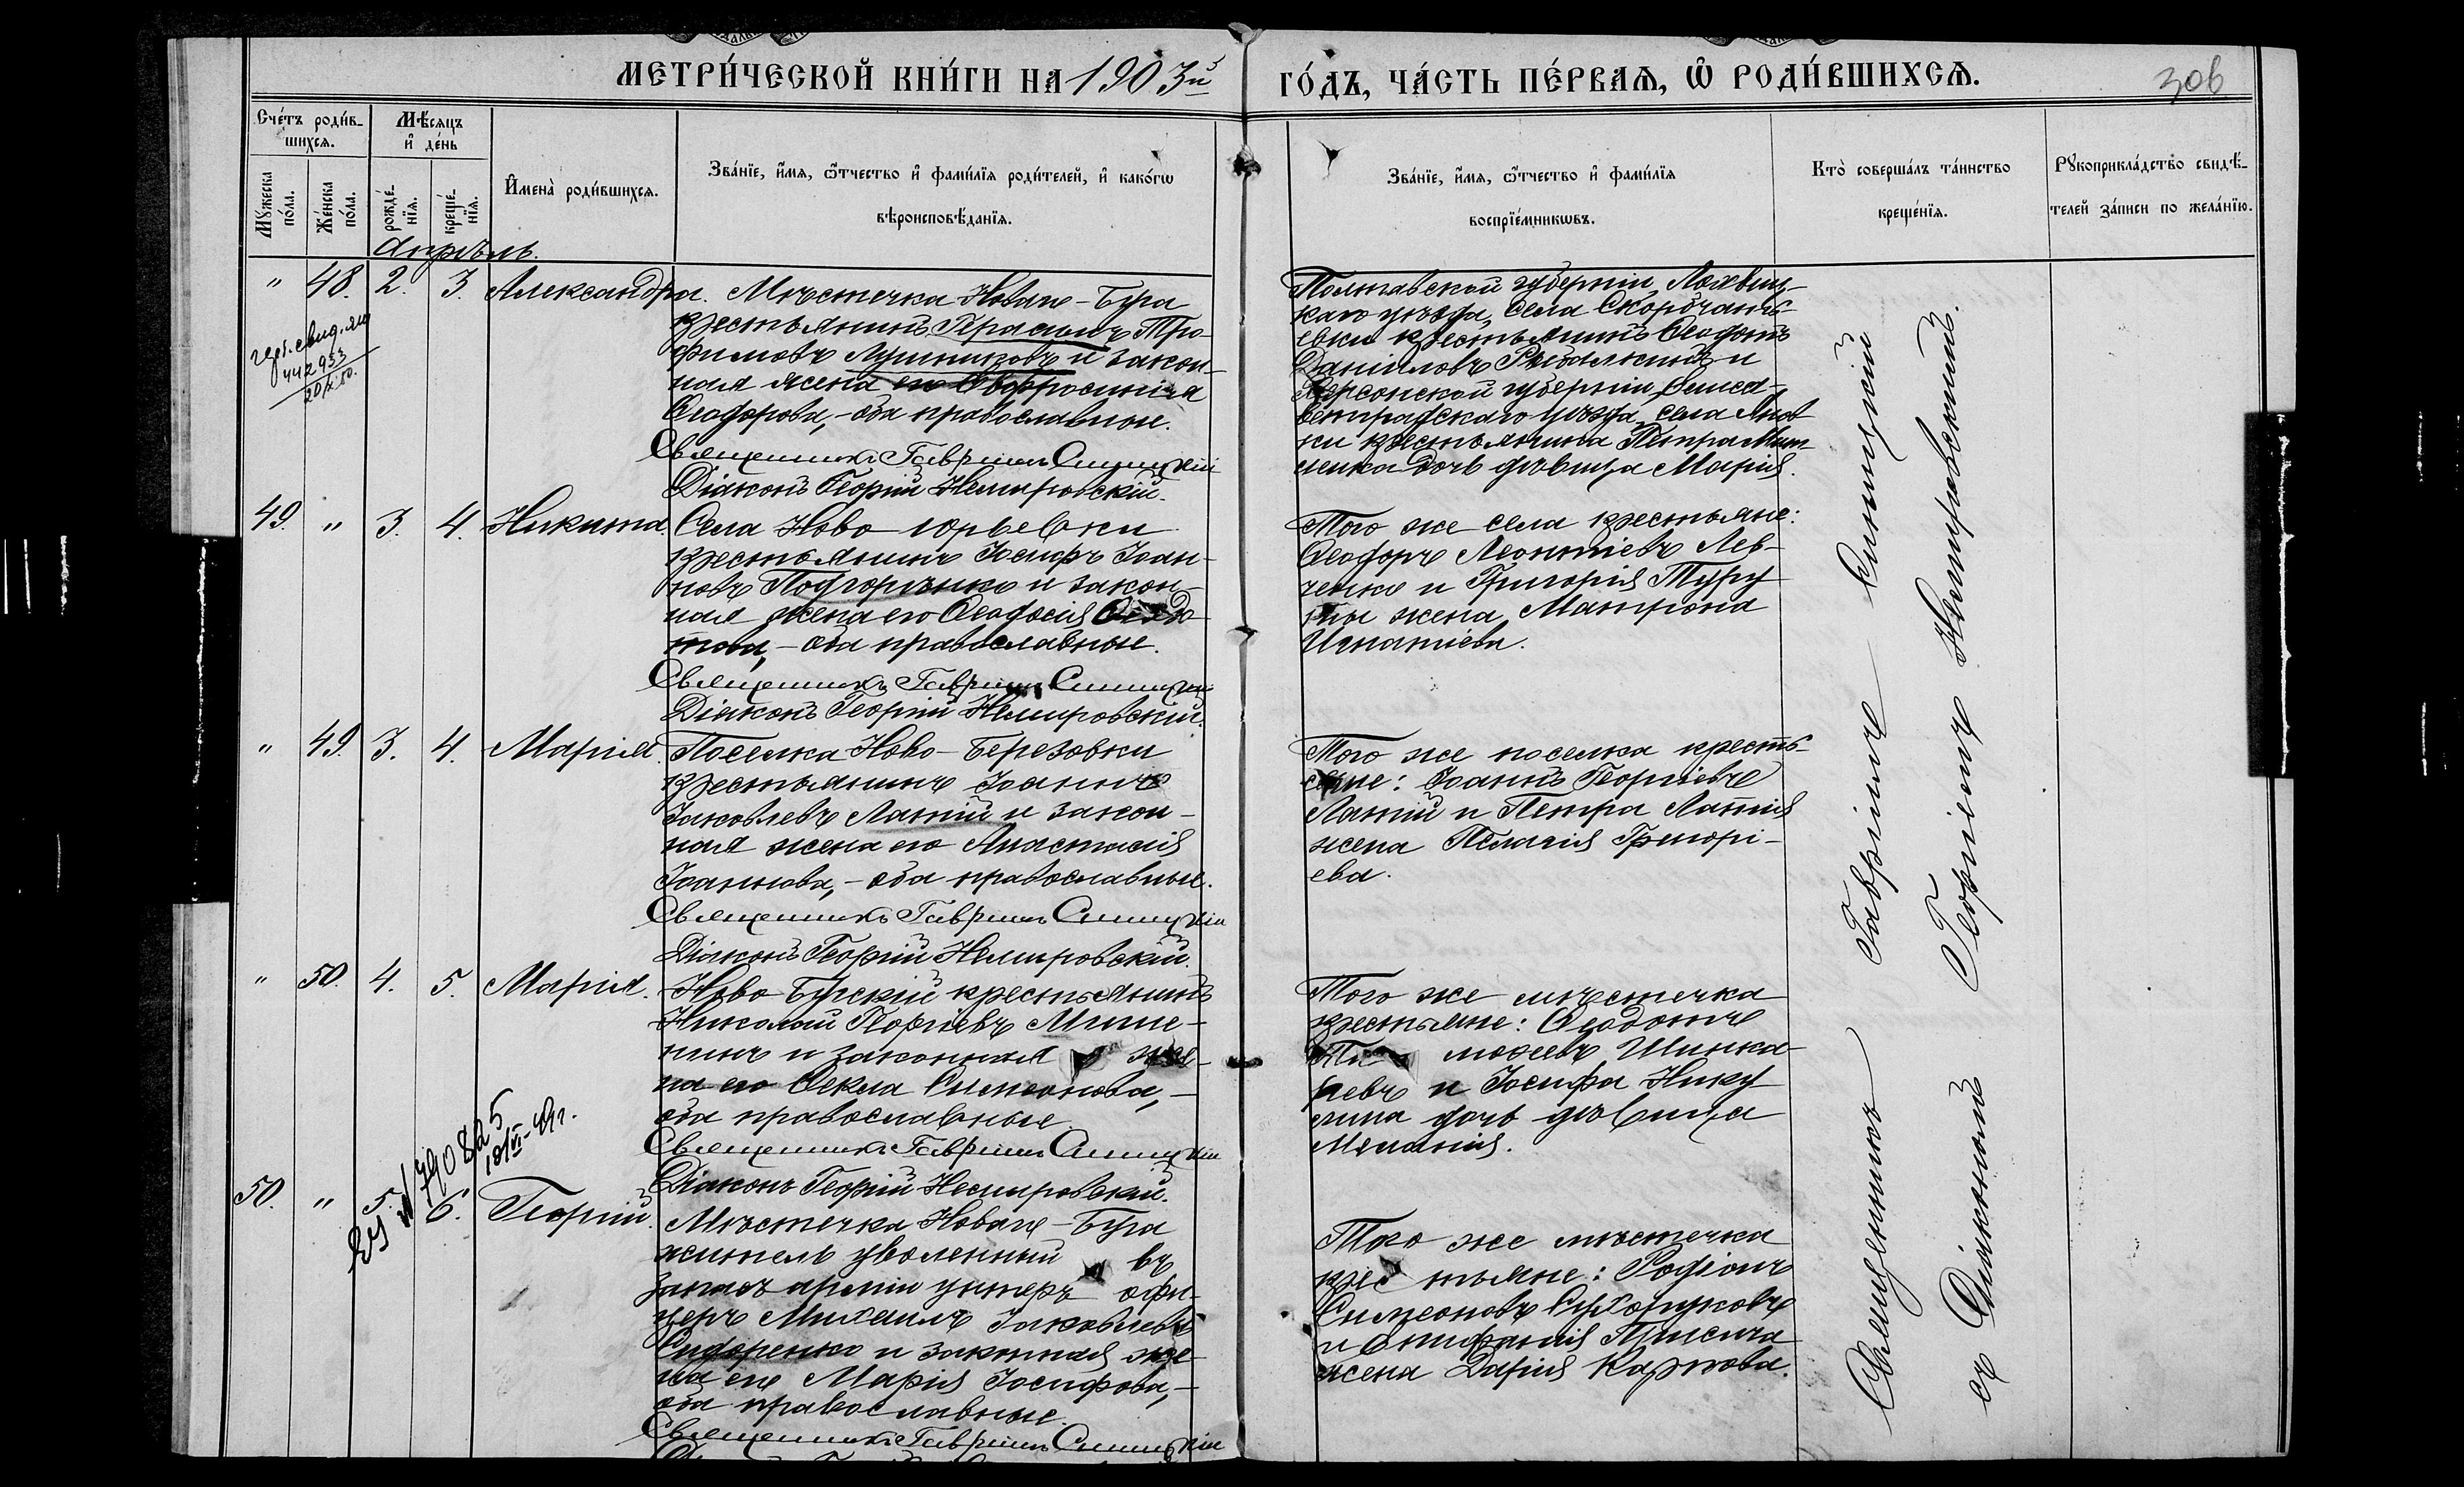 МЕТРИ́ЧЕСКОЙ КНИ́ГИ НА 1903й
ГО́ДЪ, ЧА́СТЬ ПЕ́РВАѦ, Ѽ РОДИ́ВШИХСѦ.
306
Сче́тъ роди́в-
шихсѧ.
Мѣ́сѧцъ
и҆ де́нь
Мꙋжеска
по́ла.
Же́нска
по́ла.
рожде́-
нїѧ.
креще́-
нїѧ.
И҆мена̀ роди́вшихсѧ.
Зва́нїе, и҆́мѧ, ѻ҆́тчество и҆ фами́лїѧ роди́телей, и҆ како́гѡ
вѣроисповѣ́данїѧ.
Зва́нїе, и҆́мѧ, ѻ҆́тчество и҆ фами́лїѧ
воспрїе́мникѡвъ.
Кто̀ соверша́лъ та́инство
креще́нїѧ.
Рꙋкоприкла́дство свидѣ́-
телей за́писи по жела́нїю.
Апрѣль.
" 48. 2. 3. Александра.
442953
20/X 50.
Мѣстечка Новаго-Буга
крестьянинъ Герасимъ Тро-
фимовъ Лушниковъ и закон-
ная жена его Евфросинія
Ѳеодорова,-оба православные.
Священникъ Гавріилъ Синицкій
Діаконъ Георгій Немировскій.
Полтавской губерніи, Лохвиц-
каго уѣзда, села
евки крестьянинъ Ѳеодотъ
Даніиловъ Рыбалкинъ и
Херсонской губерніи, Елиса-
ветградскаго уѣзда, села
ки крестьянина Петра
ченка дочь дѣвица Марія.
49. " 3. 4. Никита.
Села Ново Юрьевки
крестьянинъ Іосифъ Іоан-
новъ Подгорѣнко и закон-
ная жена его Ѳеодосія Ѳеодо-
това,-оба православные.
Священникъ Гавріилъ Синицкій
Діаконъ Георгій Немировскій.
Того же села крестьяне:
Ѳеодоръ Леонтіевъ Лев-
ченко и Григорія Туру-
ты жена Матрона
Игнатіева.
" 49. 3. 4. Марія.
Поселка Ново-Березовки
крестьянинъ Іоаннъ
Іаковлевъ Латій и закон-
ная жена его Анастасія
Іоаннова,-оба православные.
Священникъ Гавріилъ Синицкій
Діаконъ Георгій Немировскій.
Того же поселка кресть-
яне: Іоаннъ Георгіевъ
Латій и Петра Латія
жена Пелагія Григорі-
ева.
" 50. 4. 5. Марія.
Ново Бугскій крестьянинъ
Николай Георгіевъ Мише-
нинъ и законная же-
на его Ѳекла Симеонова,-
оба православные.
Священникъ Гавріилъ Синицкій
Діаконъ Георгій Немировскій.
Того же мѣстечка
крестьяне: Ѳеодотъ
Тимоѳеевъ Шинка-
ревъ и Іосифа Нику-
лина дочь дѣвица
Меланія.
50. " 5. 6. Георгій.
Мѣстечка Новаго-Буга
житель уволенный въ
запасъ арміи унтеръ офи-
церъ Михаилъ Іаковлевъ
Сидоренко и законная же-
на его Марія Іосифова,-
оба православные.
Священникъ Гавріилъ Синицкій
Того же мѣстечка
крестьяне: Родіонъ
Симеоновъ Сухоруковъ
и Епифанія
жена Дарія Карпова.
Священникъ Гавріилъ Синицкій
съ Діакономъ Георгіемъ Немировскимъ.